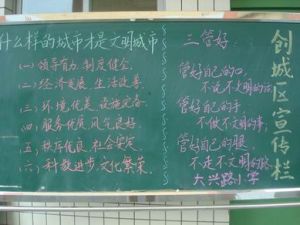 什么样的城市才是文明城市
(一) 领导有力、制度健全
(二) 经济发展、生活改善
(三) 环境优美、设施完备
(四) 服务优质、风气良好
(五) 秩序优良、社会安定
(六) 科教进步、文化繁荣
三管好:
管好自己的口,
不说不文明的话;
管好自己的手,
不做不文明的事;
管好自己的腿,
不走不文明的路
大兴路小学
创城区宣传栏